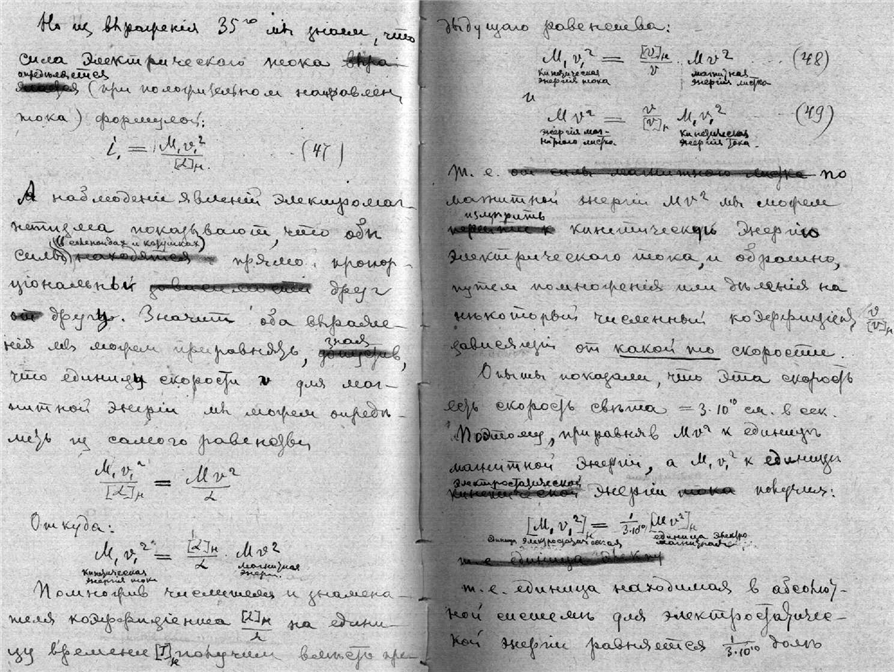 Но из выраженія 35го мы знаемъ, что
сила электрическаго тока
опредѣляется
(при положительном направлен.
тока) формулой:
i, = M,v,² / [L]н. (47)
А наблюденія явленій электромаг-
нетизма показываютъ, что обѣ
(в соленоидах и катушках)
силы прямо пропор-
ціональны друг
другу. Значит оба выраже-
нія мы можем приравнять, зная,
что единицу скорости v для маг-
нитной энергіи мы можем опредѣ-
лить из самого равенства
M,v,² / [L]н = Mv² / L
Откуда:
M,v,² = [L]н / L · Mv²
кинетическая энергія тока магнитная энергія.
Помножив числителя и знамена-
теля коэффиціента [L]н / L на едини-
цу времени [T]н получим вмѣсто пре-
дыдущаго равенства:
M,v,² = [v]н / v · Mv² (48)
кинетическая энергія тока магнитная энергія листка
и
Mv² = v / [v]н M,v,² (49)
энергія маг-нитного листка. кинетическая энергія тока.
т. е. по
магнитной энергіи Mv² мы можем
измѣрить
кинетическую энергію
электрическаго тока, и обратно,
путем помноженія или дѣленія на
нѣкоторый численный коэффиціент v / [v]н
зависящій от какой то скорости.
Опыты показали, что эта скорость
есть скорость свѣта = 3·10¹⁰ см. в сек.
Поэтому, приравняв Mv² к единицѣ
магнитной энергіи, а M,v,² к единицѣ
электростатической
энергіи получим:
[M,v,²]н = 1 / 3·10¹⁰ [Mv²]н
единица электростатическая единица электромагнитная
т. е. единица находимая в абсолют-
ной системѣ для электростатиче-
кой энергіи равняется 1 / 3·10¹⁰ долѣ